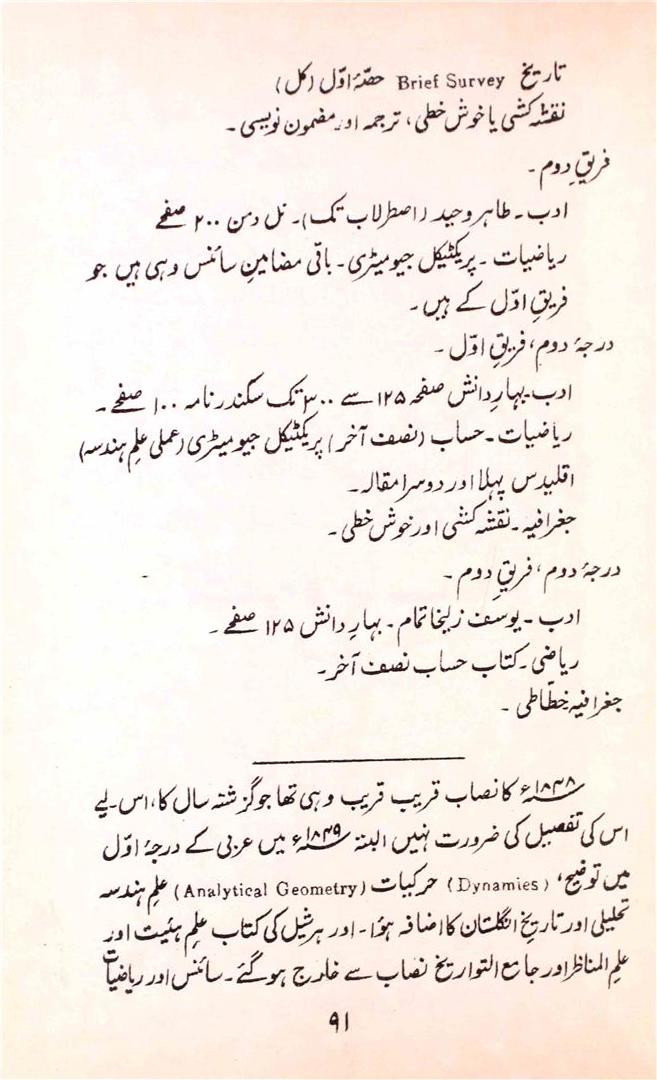 تاریخ Brief Survey حصّۂ اوّل (کل)
نقشہ کشی یا خوش خطی، ترجمہ اور مضمون نویسی۔
فریقِ دوم۔
ادب۔ طاہر وحید (اصطرلاب تک)۔ نل دمن ۲۰۰ صفحے
ریاضیات۔ پریکٹیکل جیومیٹری۔ باقی مضامینِ سائنس وہی ہیں جو
فریقِ اوّل کے ہیں۔
درجۂ دوم، فریقِ اوّل۔
ادب۔ بہارِ دانش صفحہ ۱۲۵ سے ۳۰۰ تک سکندر نامہ ۱۰۰ صفحے۔
ریاضیات۔ حساب (نصف آخر) پریکٹیکل جیومیٹری (عملی علمِ ہندسہ)
اقلیدس پہلا اور دوسرا مقالہ۔
جغرافیہ۔ نقشہ کشی اور خوش خطی۔
درجۂ دوم، فریقِ دوم۔
ادب۔ یوسف زلیخا تمام۔ بہارِ دانش ۱۲۵ صفحے۔
ریاضی۔ کتاب حساب نصف آخر۔
جغرافیہ خطّاطی۔
۱۸۴۸ء کا نصاب قریب قریب وہی تھا جو گزشتہ سال کا، اس لیے
اس کی تفصیل کی ضرورت نہیں البتہ ۱۸۴۹ء میں عربی کے درجۂ اوّل
میں توضیح، (Dynamies) حرکیات (Analytical Geometry) علمِ ہندسہ
تحلیلی اور تاریخِ انگلستان کا اضافہ ہؤا۔ اور ہرشیل کی کتاب علمِ ہئیت اور
علم المناظر اور جامع التواریخ نصاب سے خارج ہو گئے۔ سائنس اور ریاضیات
۹۱